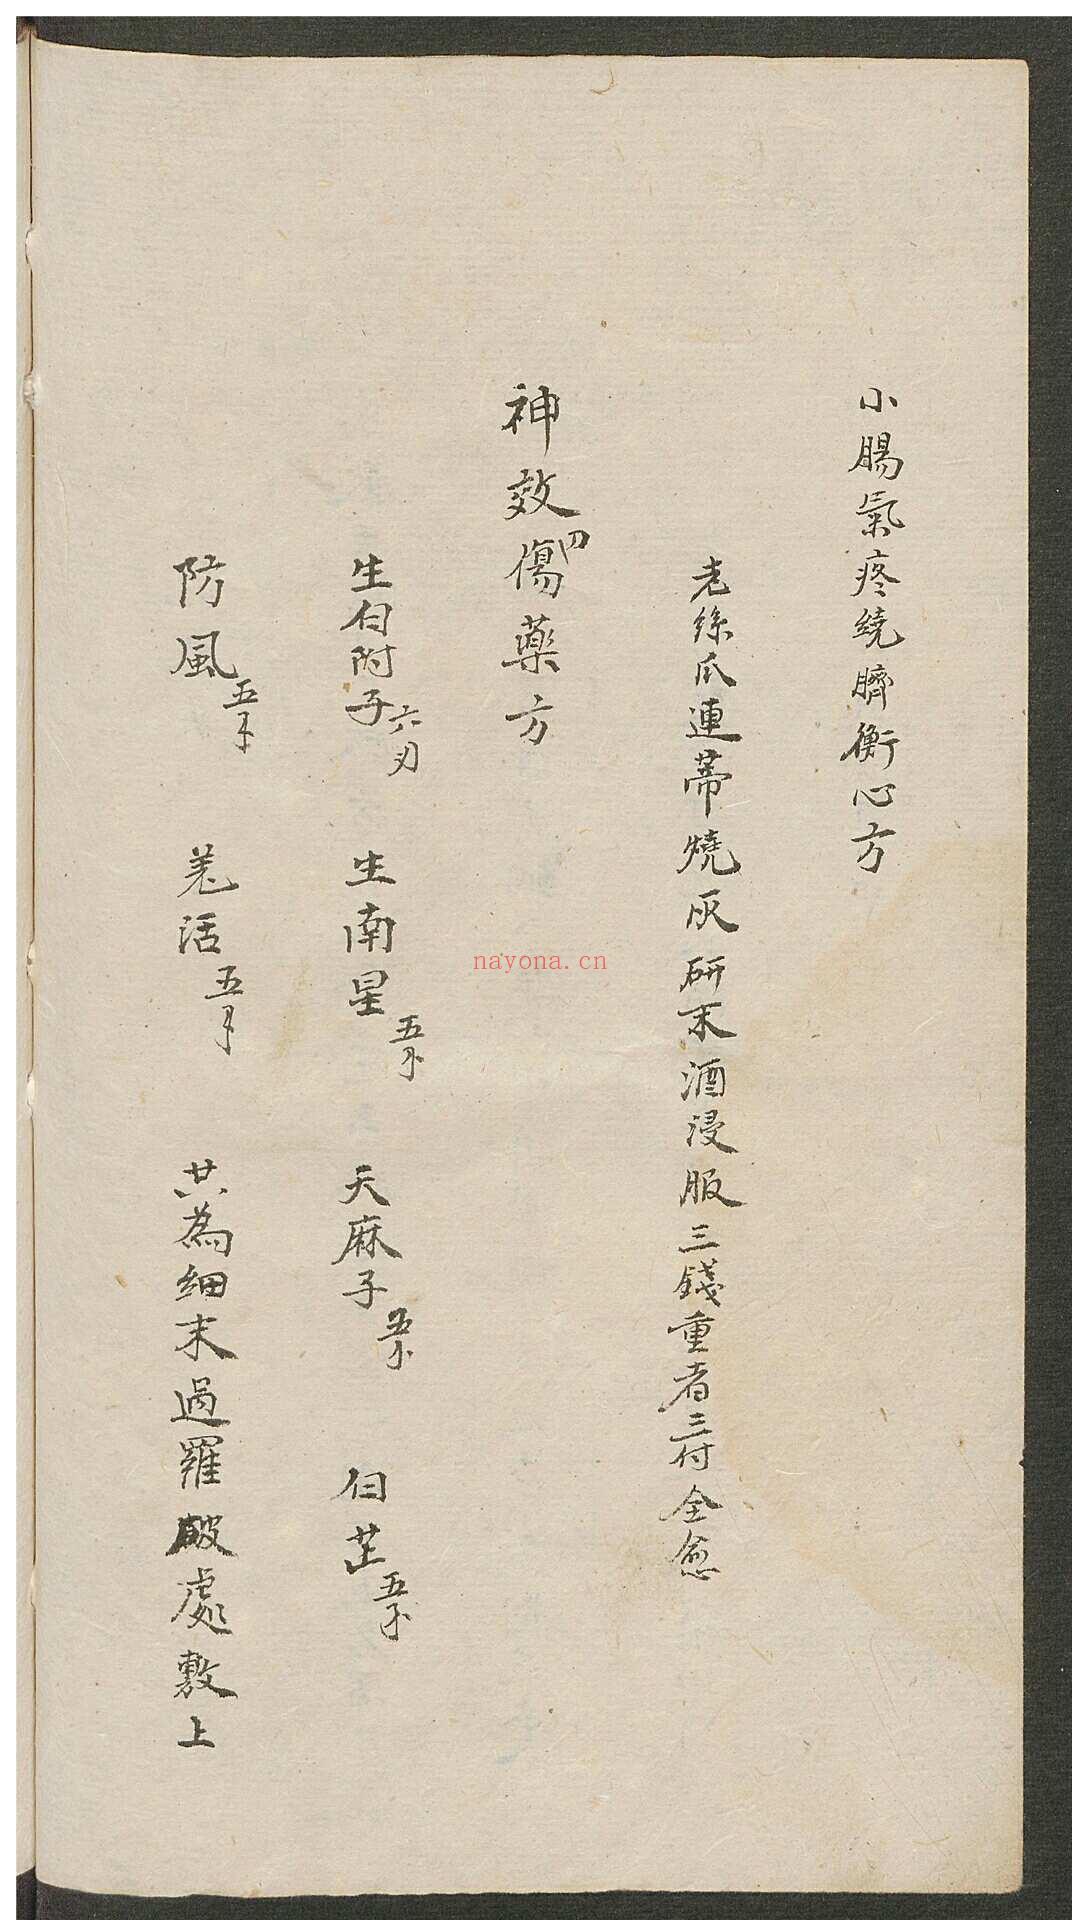 小腸氣疼繞臍衝心方
老絲瓜連蒂燒灰研末酒浸服三錢重者三付全愈
神效刀傷藥方
生白附子六刃 生南星五 天麻子五 白芷五
防風五 羌活五 共為細末過羅破處敷上
nayona.cn